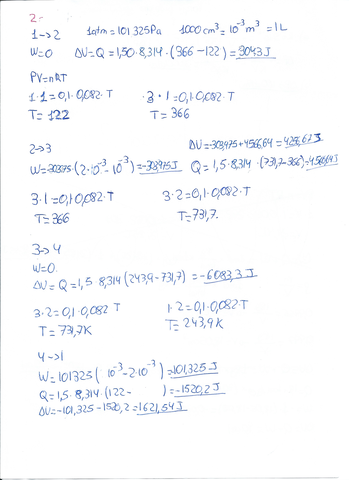 2.-
1→2 1atm=101325Pa 1000cm³=10⁻³m³=1L
W=0 ΔU=Q=1,50·8,314·(366-122)=3043J
PV=nRT
1·1=0,1·0,082·T 3·1=0,1·0,082·T
T=122 T=366
2→3 ΔU=-303,975+4566,64=4256,67J
W=-303975·(2·10⁻³-10⁻³)=-303,975J Q=1,5·8,314·(731,7-366)=4566,64J
3·1=0,1·0,082·T 3·2=0,1·0,082·T
T=366 T=731,7.
3→4
W=0.
ΔU=Q=1,5·8,314(243,9-731,7)=-6083,3J
3·2=0,1·0,082·T 1·2=0,1·0,082·T
T=731,7K T=243,9K
4→1
W=101325(10⁻³-2·10⁻³)=101,325J
Q=1,5·8,314·(122- )=-1520,2J
ΔU=-101,325-1520,2=1621,54J